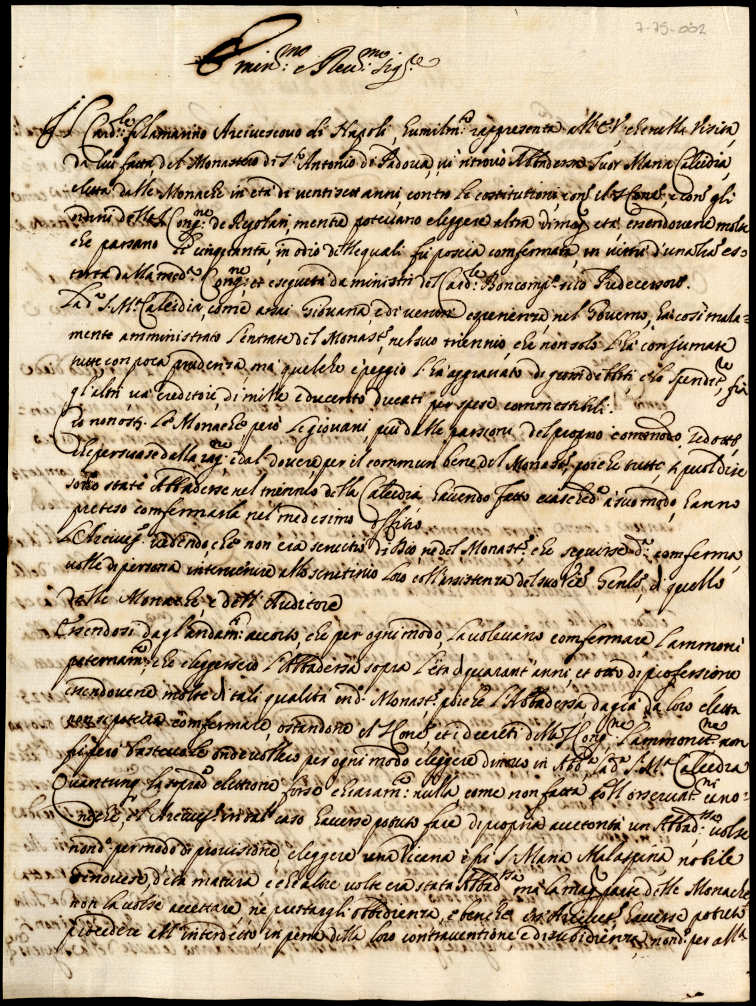 7-75-002
Emin.mo e Reu.mo Sig.re
Il Card.le Filamarino Arciuescouo di Napoli, humilm.te rappresenta all'E.V. che nella Visita,
da lui fatta del Monastero di S.to Antonio di Padoua, ui ritrouò Abbadessa Suor Maria Calcidia,
eletta dalle Monache in età di ventisei anni, contro le costitutioni con.e il S. Conc.o e con.o gli
ordini della S. Cong.ne de Regolari, mentre poteuano eleggere altra di mag.r età essendouene molte
che passano li cinquanta, in odio delle quali fù poscia confermata in virtù d'una l'ra es=
torta dalla med.a Cong.ne et eseguita da ministri del Card.le Boncomp.o suo Predecessore.
La d.a S. M.a Calcidia, come assai Giouane, e di veruna esperienza nel Gouerno, hà così mala=
mente amministrato l'entrate del Monast.o nel suo triennio, che non solo l'hà consumate
tutte con poca prudenza, mà quel che è peggio l'hà aggrauato di grossi debiti, e lo spendit.re frà
gl'altri và creditore, di mille e ducento ducati per spese commestibili.
Ciò non ost.e le Monache però le giouani, più dalle passioni del proprio commodo, sedotte,
che persuase dalla rag.ne e dal douere, per il commun bene del Monast.o poiche tutte, si può dire
sono state Abbadesse nel triennio della Calcidia, hauendo fatto ciasched.a à suo modo, hanno
preteso confermarla nel medesimo offitio
L'Arciues.o vedendo che non era seruitio di Dio ne del Monast.o che seguisse d.a conferma,
volle di persona interuenire allo scrutinio loro coll'assistenza del suo Vic.o Gen.le, di quello
delle Monache, e dell'Auditore
Essendosi dagl'andam.ti accorto, che per ogni modo, la voleuano confermare, l'ammonì
paternam.te, che eleggessero l'Abbadessa sopra l'età di quarant'anni, et otto di professione
essendouene molte di tali qualità in d.o Monast.o poiche l'Abbadessa da già da loro eletta
non si poteua confermare, ostandone il S. Conc.o, et i decreti della S. Cong.ne l'ammonit.ne non
fù però basteuole onde vollero per ogni modo eleggere di nuouo in Abb.a la d.a S. M.a Calcidia
Quantunq. la soprad.a elettione fosse chiaram.te nulla come non fatta coll'osseruat.ni cano=
niche, e l'Arciues.o in tal caso hauesse potuto fare di propria auttorità un'Abbad.ssa volse
nond.o per modo di prouisione, eleggere una Vicaria e fù S. Maria Malaspina, nobile
Genouese, d'età matura, e che altre volte era stata Abbad.ssa mà la mag.r parte delle Monache
non la volse accettare, ne prestargli obbidienza, e benche l'Arciues.o hauesse potuto
procedere all'interdetto, in pena della loro contrauentione, e disubidienza, nond.o per all'